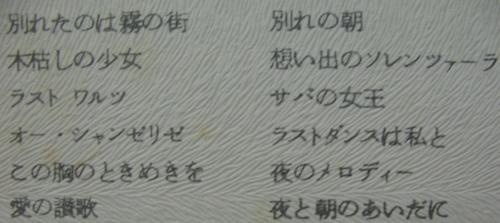 別れたのは霧の街
木枯しの少女
ラスト ワルツ
オー・シャンゼリゼ
この胸のときめきを
愛の讃歌
別れの朝
想い出のソレンツァーラ
サバの女王
ラストダンスは私と
夜のメロディー
夜と朝のあいだに